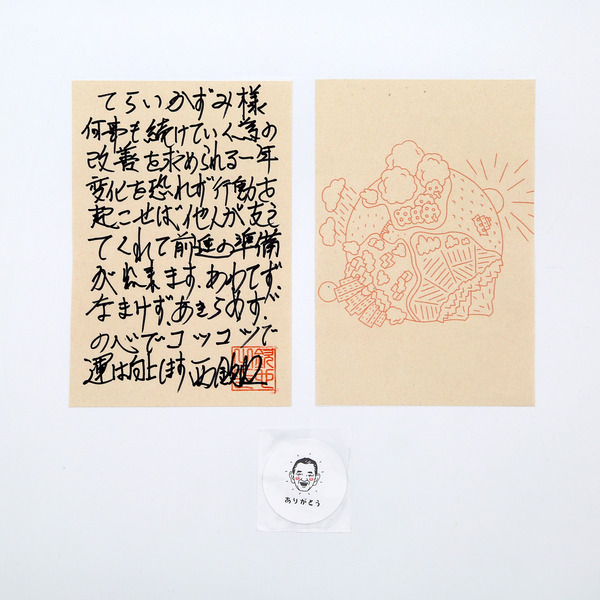 てらいかずみ様
何事も続けていく為の
改善を求められる一年
変化を恐れず行動を
起こせば他人が支え
てくれて前進の準備
が出来ます。あわてず、
なまけず、あきらめず、
の心でコツコツで
運は向上します
ありがとう